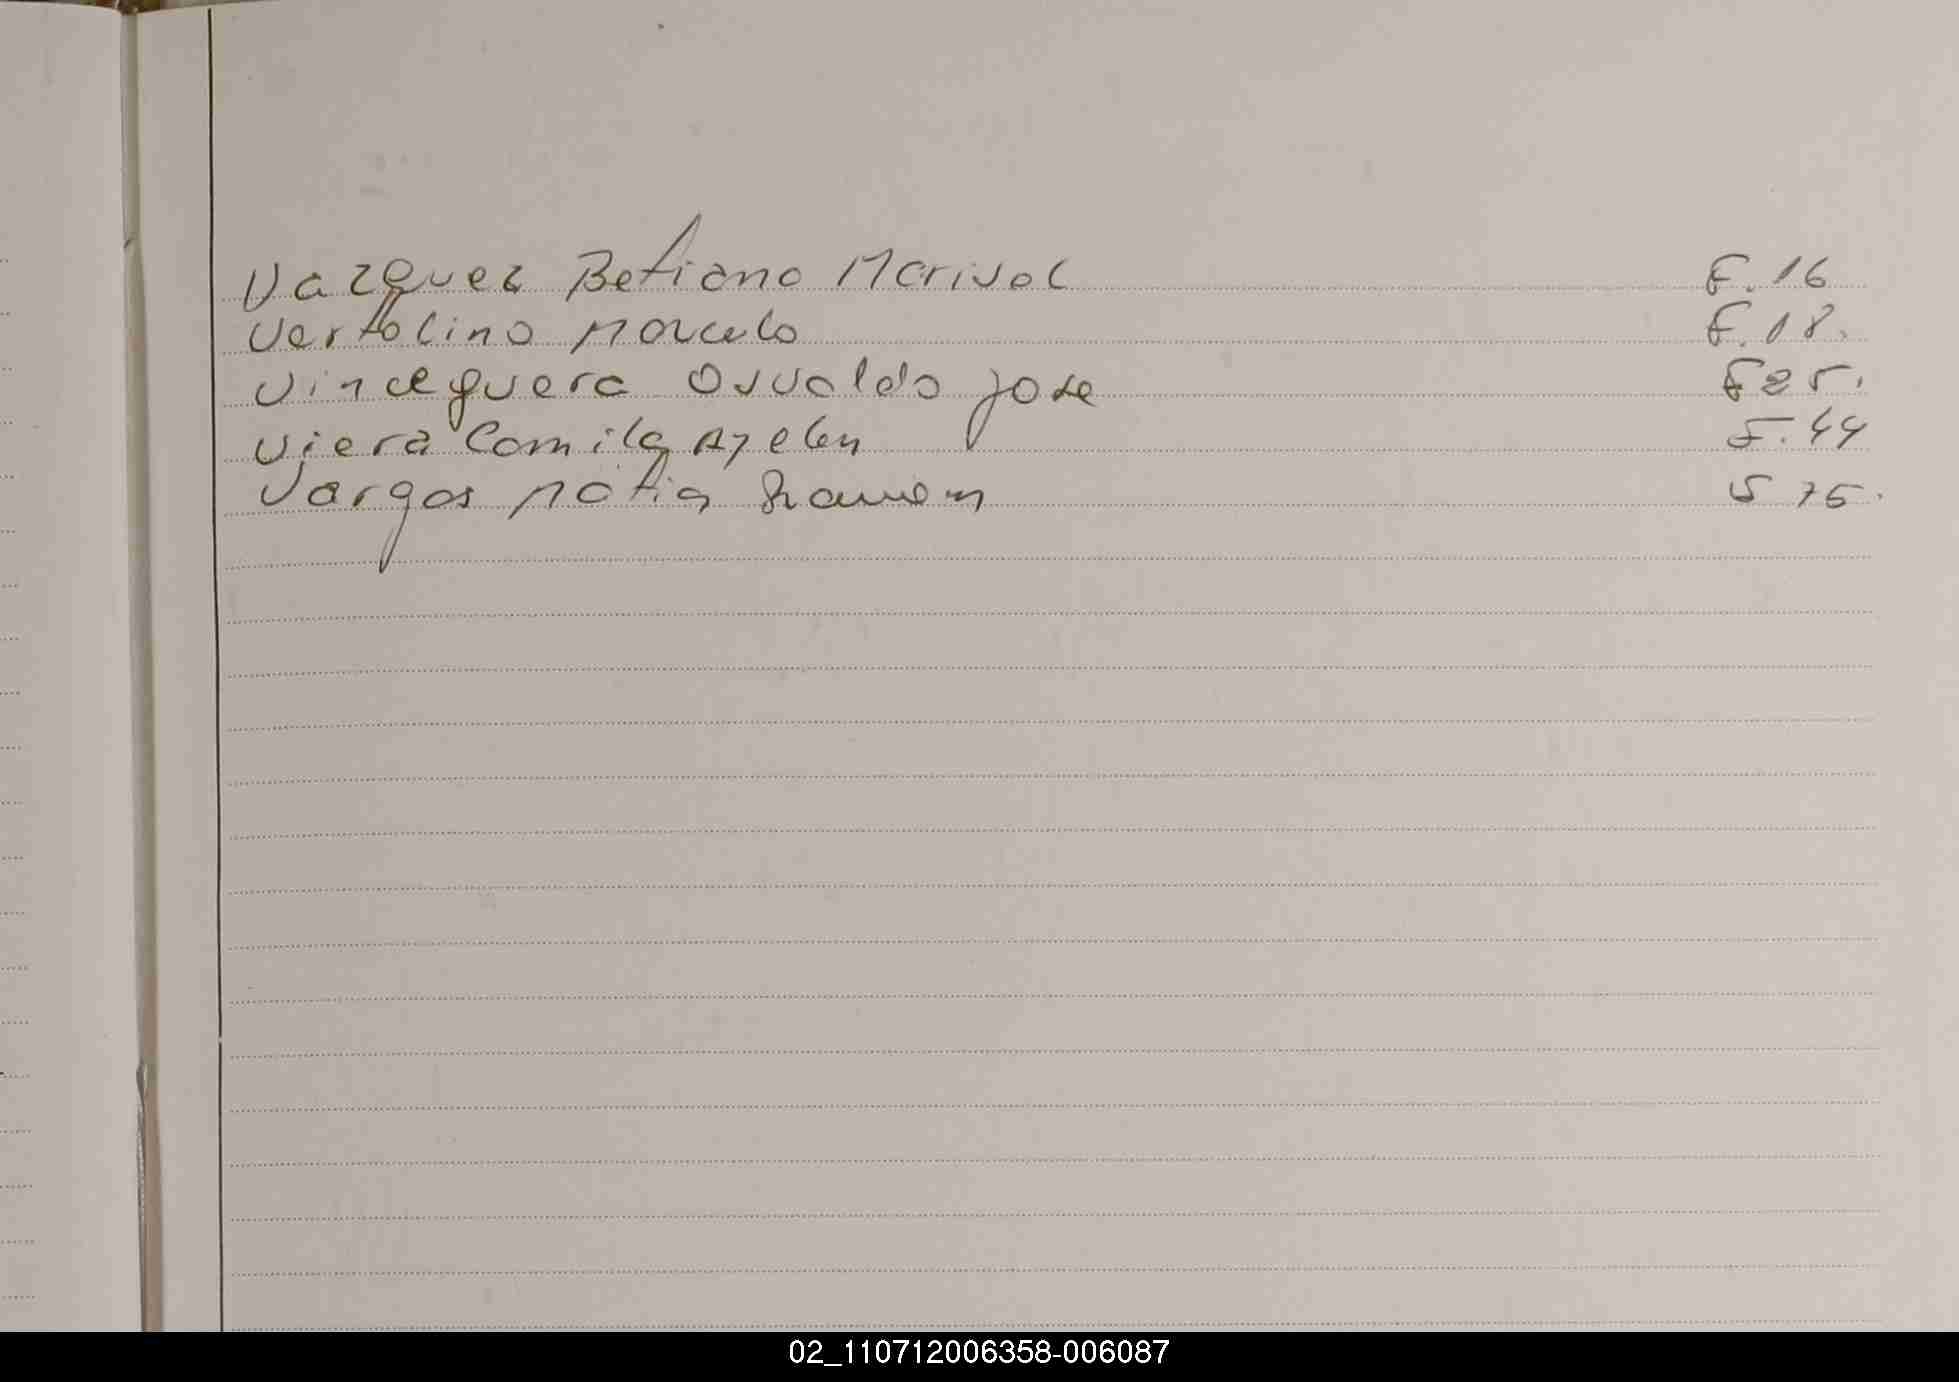 Vazquez Betiana Marisol F. 16
Vertolino Marcelo F. 18.
Vinceguera Osvaldo Jose F 25.
Viera Camila Ayelen F. 44
Vargas Matias Ramon 75.
02_110712006358-006087